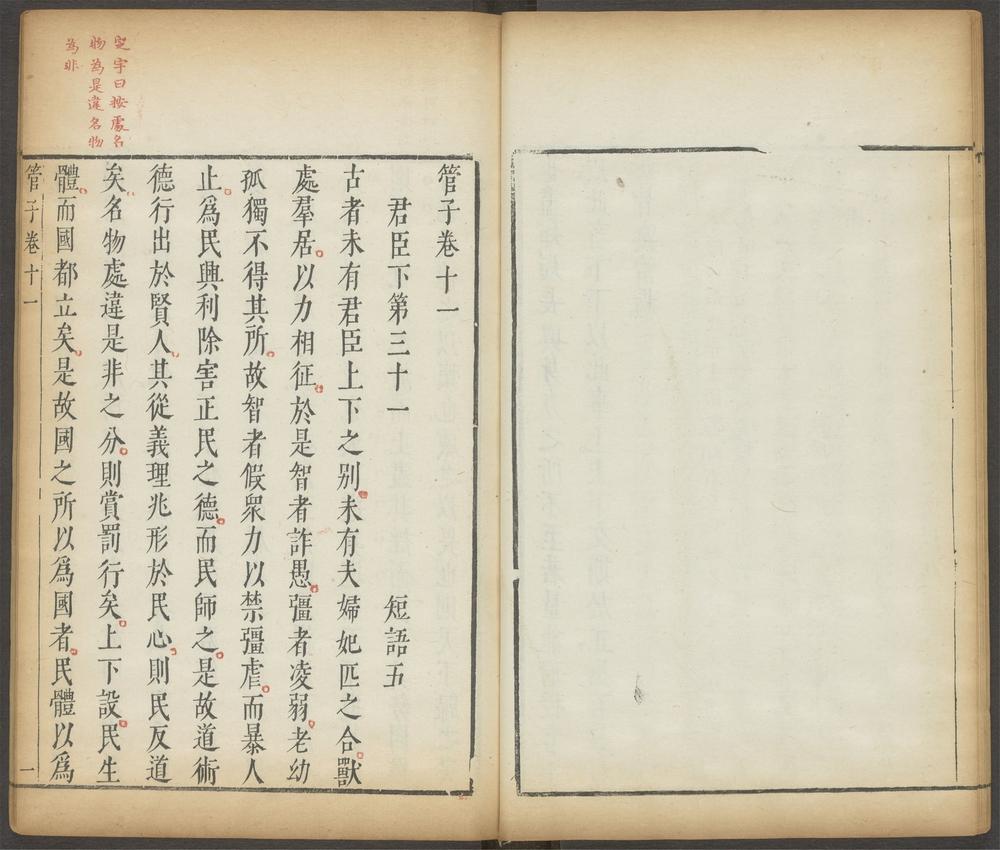 定宇曰按處名
物為是違名物
為非
管子卷十一
君臣下第三十一 短語五
古者未有君臣上下之别未有夫婦妃匹之合獸
處羣居以力相征於是智者詐愚彊者凌弱老幼
孤獨不得其所故智者假衆力以禁彊虐而暴人
止爲民興利除害正民之德而民師之是故道術
德行出於賢人其從義理兆形於民心則民反道
矣名物處違是非之分則賞罰行矣上下設民生
體而國都立矣是故國之所以爲國者民體以爲
管子卷十一 一